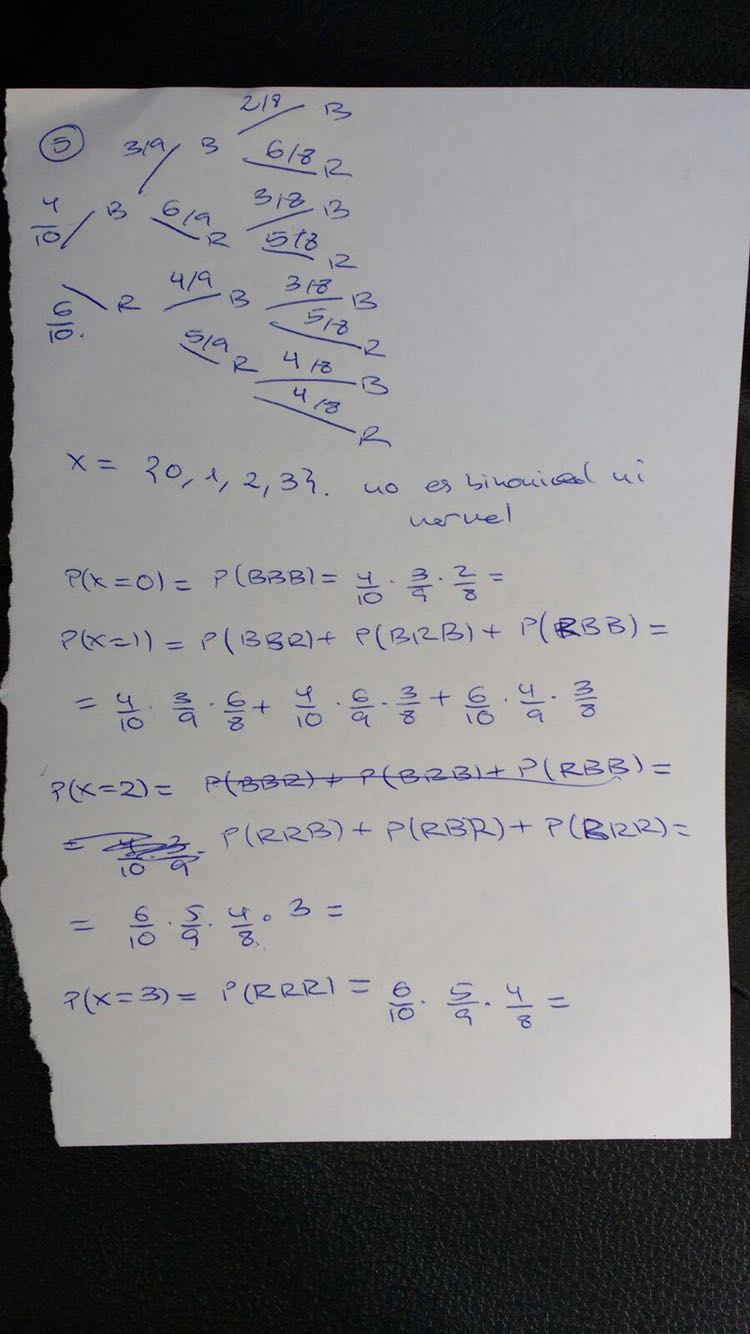 5
2/8 B
3/9 B 6/8 R
4/10 B 6/9 R 3/8 B
5/8 R
6/10. R 4/9 B 3/8 B
5/8 R
5/9 R 4/8 B
4/8 R
X = {0, 1, 2, 3}. no es binomial ni
normal
P(X=0) = P(BBB) = 4/10 · 3/9 · 2/8 =
P(X=1) = P(BBR) + P(BRB) + P(RBB) =
= 4/10 · 3/9 · 6/8 + 4/10 · 6/9 · 3/8 + 6/10 · 4/9 · 3/8
P(X=2) = P(BBR) + P(BRB) + P(RBB) =
= 4/10 · 3/9 · P(RRB) + P(RBR) + P(BRR) =
= 6/10 · 5/9 · 4/8 · 3 =
P(X=3) = P(RRR) = 6/10 · 5/9 · 4/8 =